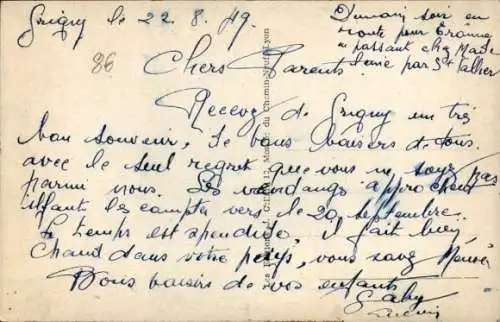 Grigny le 22.8.49.
Demain soir en
route pour
en passant chez
par St
86
Chers Parents
Recevez de Grigny un très
bon souvenir, de bons baisers de tous
avec le seul regret que vous ne soyez pas
parmi nous. Les vendanges approchent
les compte vers le 20 septembre.
le temps est splendide il fait bien
chaud dans votre pays, vous savez
Bons baisers de vos enfants
Gaby